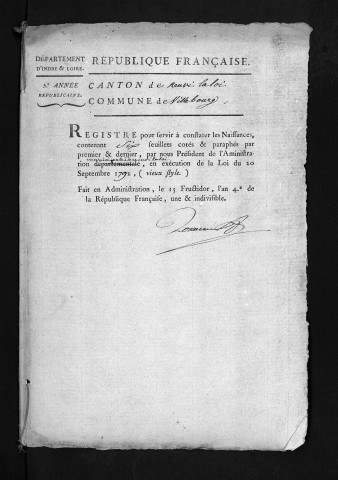 DÉPARTEMENT
D'INDRE & LOIRE.
5e ANNÉE
RÉPUBLICAINE.
RÉPUBLIQUE FRANÇAISE.
CANTON de neuvi la loi
COMMUNE de Villebourg.
REGISTRE pour servir à constater les Naissances,
contenant Six feuillets cotés & paraphés par
premier & dernier, par nous Président de l'Aministra-
tion départementale, en exécution de la Loi du 20
Septembre 1792, ( vieux style. )
Fait en Administration, le 15 Fructidor, l'an 4.e de
la République Française, une & indivisible.